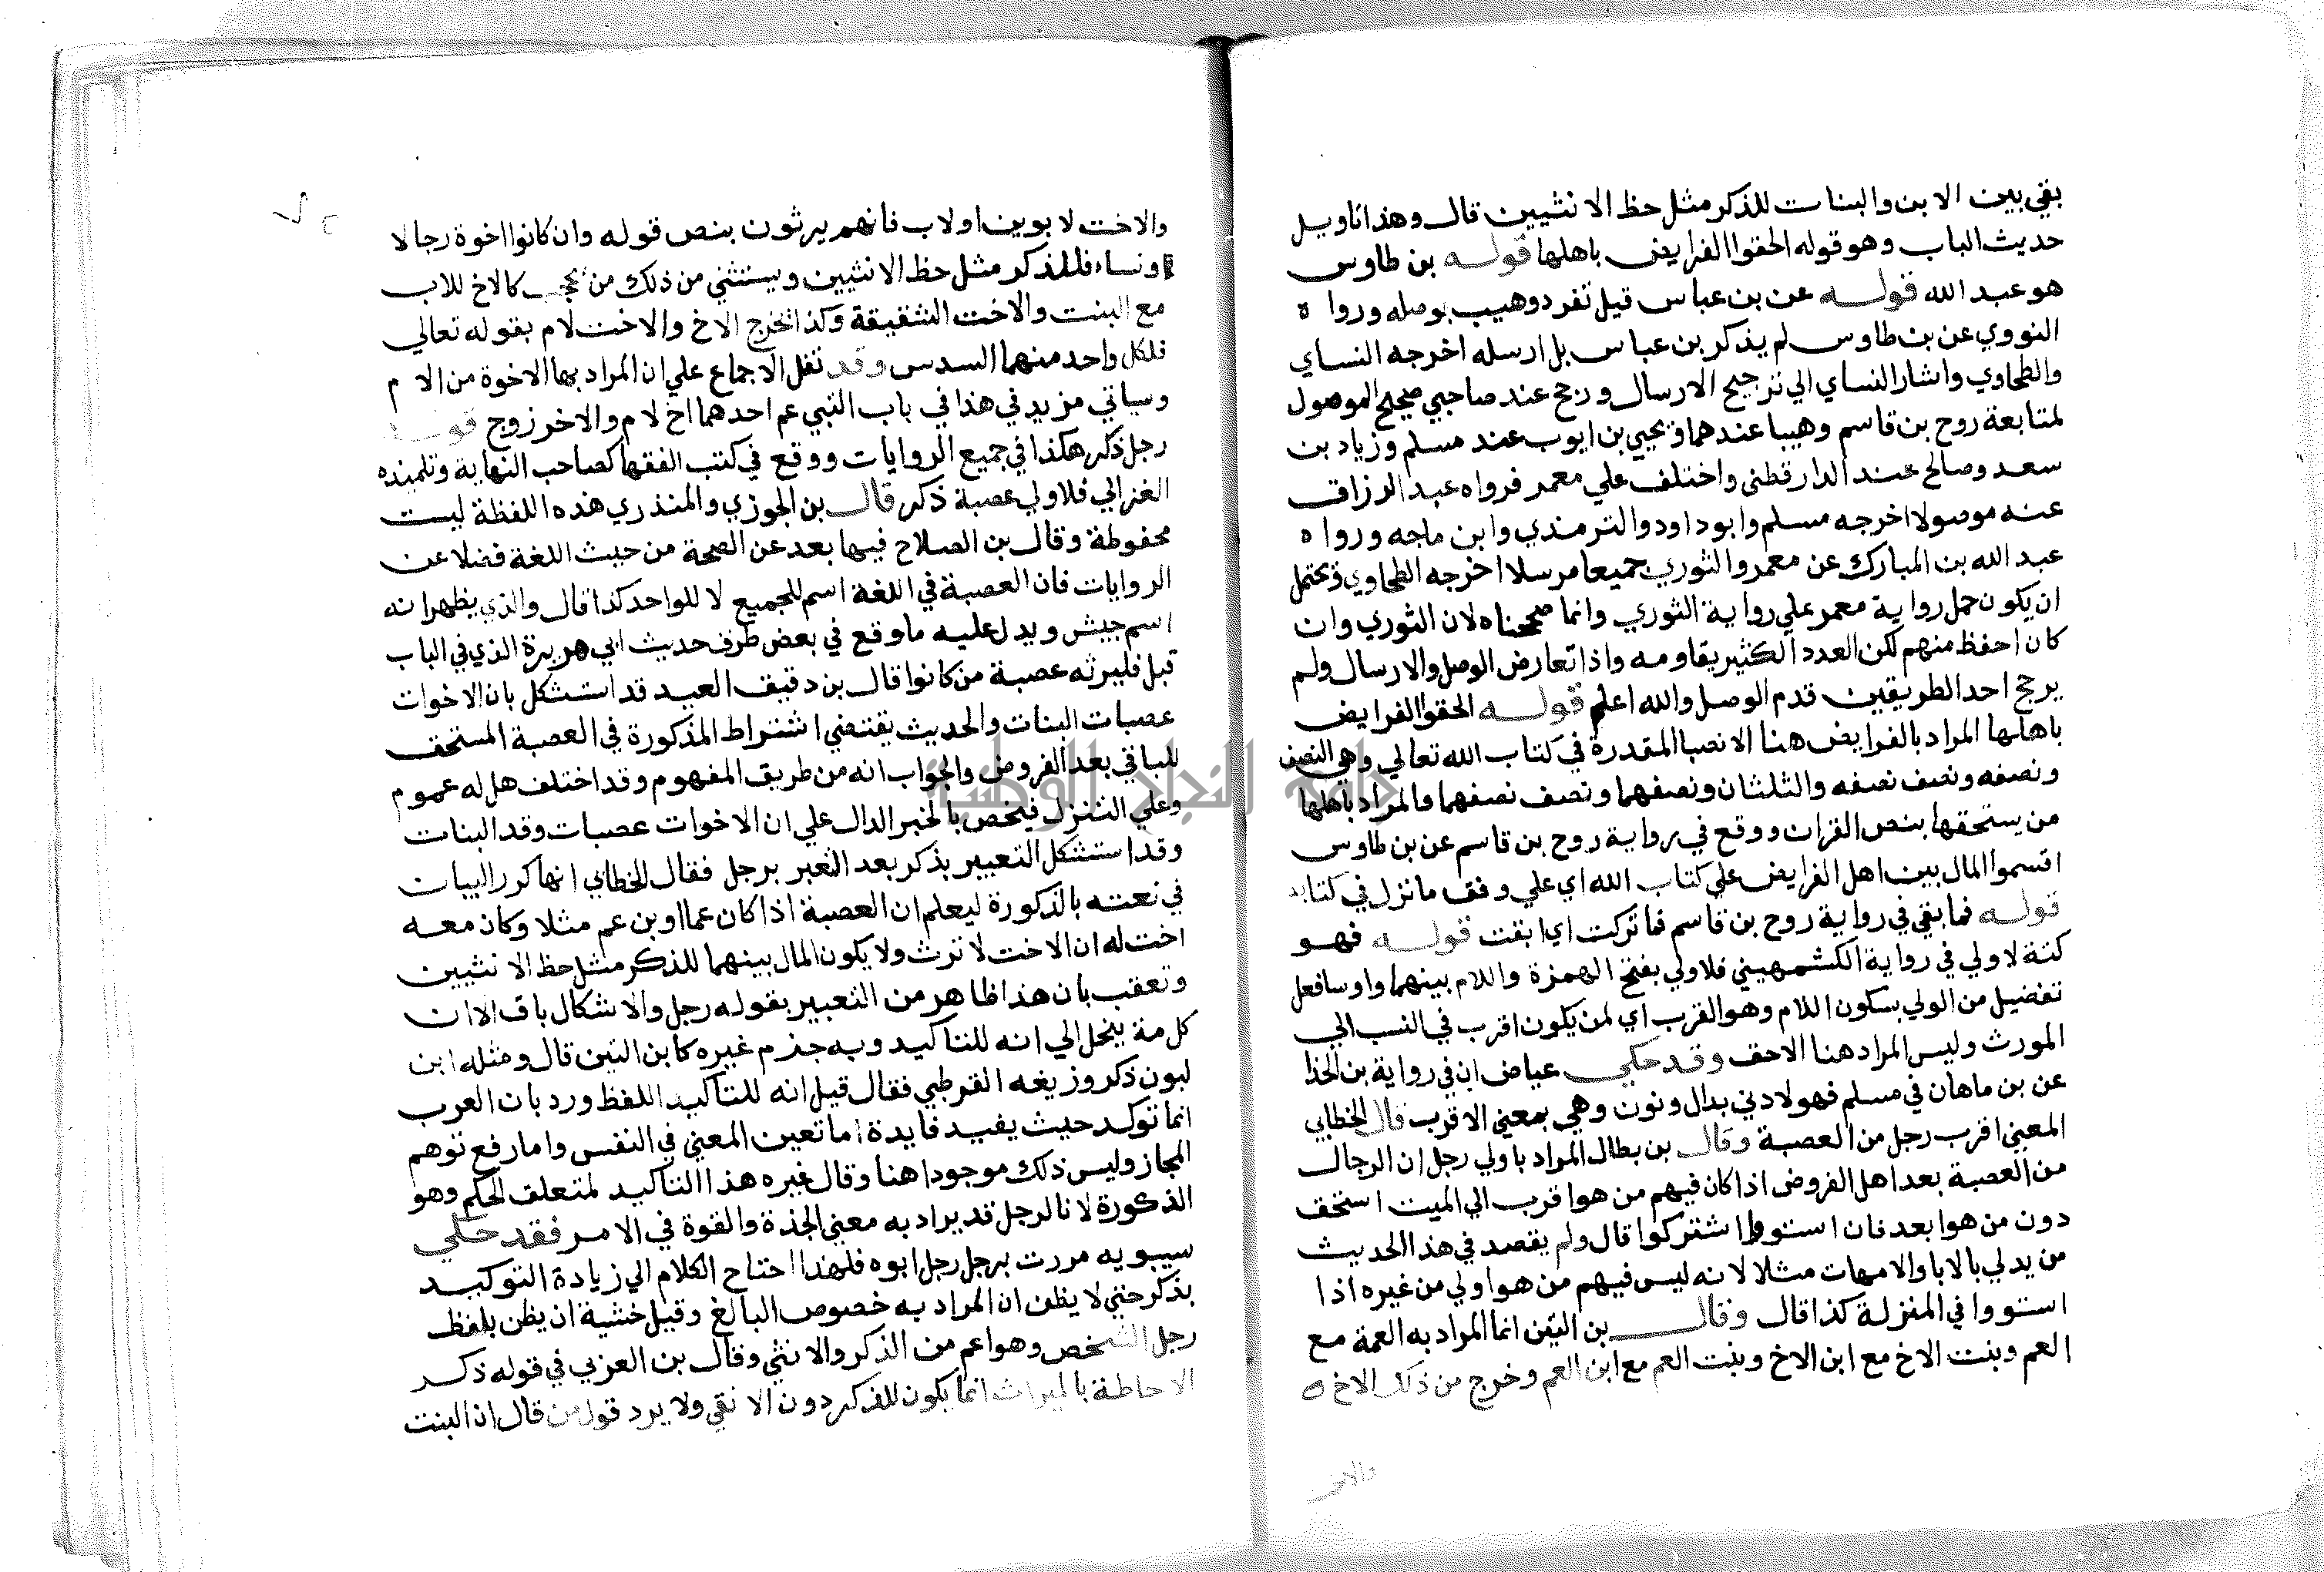 بقي بين الابن والبنات للذكر مثل حظ الانثيين قال وهذا تاويل
حديث الباب وهو قوله الحقوا الفرايض باهلها قوله بن طاوس
هو عبد الله قوله عن بن عباس قيل تفرد وهيب بوصله ورواه
النووي عن بن طاوس لم يذكر بن عباس بل ارسله اخرجه النساي
والطحاوي واشار النساي الي ترجيح الارسال ورجح عند صاحبي صحيح الموصول
لمتابعة روح بن قاسم وهيبا عندهما ويحيي بن ايوب عند مسلم وزياد بن
سعد وصالح عند الدارقطني واختلف علي معمر فرواه عبد الرزاق
عنه موصولا اخرجه مسلم وابو داود والترمذي وابن ماجه ورواه
عبد الله بن المبارك عن معمر والثوري جميعا مرسلا اخرجه الطحاوي ويحتمل
ان يكون حمل رواية معمر علي رواية الثوري وانما صححناه لان الثوري وان
كان احفظ منهم لكن العدد الكثير يقاومه واذا تعارض الوصل والارسال ولم
يرجح احد الطريقين قدم الوصل والله اعلم قوله الحقوا الفرايض
باهلها المراد بالفرايض هنا الانصبا المقدرة في كتاب الله تعالي وهي النصف
ونصفه ونصف نصفه والثلثان ونصفهما ونصف نصفهما والمراد باهلها
من يستحقها بنص القران ووقع في رواية روح بن قاسم عن بن طاوس
اقسموا المال بين اهل الفرايض علي كتاب الله اي علي وفق ما نزل في كتابه
قوله فما بقي في رواية روح بن قاسم فما تركت اي ابقت قوله فهو
لاولي في رواية الكشمهيني فلاولي بفتح الهمزة واللام بينهما واو سا فعل
تفضيل من الولي بسكون اللام وهو القرب اي لمن يكون اقرب في النسب الي
المورث وليس المراد هنا الاحق وقد حكي عياض ان في رواية بن الحذا
عن بن ماهان في مسلم فهو لادني بدال ونون وهي بمعني الاقرب قال الخطابي
المعني اقرب رجل من العصبة وقال بن بطال المراد باولي رجل ان الرجال
من العصبة بعد اهل الفروض اذا كان فيهم من هو اقرب الي الميت استحق
دون من هو ابعد فان استووا اشتركوا قال ولم يقصد في هذا الحديث
من يدلي بالابا والامهات مثلا لانه ليس فيهم من هو اولي من غيره اذا
استووا في المنزلة كذا قال وقال بن التين انما المراد به العمة مع
العم وبنت الاخ مع ابن الاخ وبنت العم مع ابن العم وخرج من ذلك الاخ
والاخت
والاخت لابوين او لاب فانهم يرثون بنص قوله وان كانوا اخوة رجالا
ونساء فللذكر مثل حظ الانثيين ويستثني من ذلك من يحجب كالاخ للاب
مع البنت والاخت الشقيقة وكذا يخرج الاخ والاخت لام بقوله تعالي
فلكل واحد منهما السدس وقد نقل الاجماع علي ان المراد بها الاخوة من الام
وسياتي مزيد في هذا في باب ابني عم احدهما اخ لام والاخر زوج قوله
رجل ذكر هكذا في جميع الروايات ووقع في كتب الفقها كصاحب النهاية وتلميذه
الغزالي فلاولي عصبة ذكر قال بن الجوزي والمنذري هذه اللفظة ليست
محفوظة وقال بن الصلاح فيها بعد عن الصحة من حيث اللغة فضلا عن
الروايات فان العصبة في اللغة اسم للجميع لا للواحد كذا قال والذي يظهر انه
اسم جنس ويدل عليه ما وقع في بعض طرق حديث ابي هريرة الذي في الباب
قبل فليرثه عصبة من كانوا قال بن دقيق العيد قد استشكل بان الاخوات
عصبات البنات والحديث يقتضي اشتراط الذكورة في العصبة المستحق
للباقي بعد الفروض والجواب انه من طريق المفهوم وقد اختلف هل له عموم
وعلي التنزل فيخص بالخبر الدال علي ان الاخوات عصبات وقد البنات
وقد استشكل التعبير بذكر بعد التعبر برجل فقال الخطابي انها كرر البيان
في نعته بالذكورة ليعلم ان العصبة اذا كان عما او بن عم مثلا وكان معه
اخت له ان الاخت لا ترث ولا يكون المال بينهما للذكر مثل حظ الانثيين
وتعقب بان هذا ظاهر من التعبير بقوله رجل والاشكال باق الا ان
كلامه ينحل الي انه للتاكيد وبه جزم غيره كابن التين قال ومثله ابن
لبون ذكر وزيفه القرطبي فقال قيل انه للتاكيد اللفظ ورد بان العرب
انما توكد حيث يفيد فايدة اما تعين المعني في النفس واما رفع توهم
المجاز وليس ذلك موجودا هنا وقال غيره هذا التاكيد لمتعلق الحكم وهو
الذكورة لان الرجل قد يراد به معني الجذة والقوة في الامر فقد حكي
سيبويه مررت برجل رجل ابوه فلهذا احتاج الكلام الي زيادة التوكيد
بذكر حتي لا يظن ان المراد به خصوص البالغ وقيل خشية ان يظن بلفظ
رجل الشخص وهو اعم من الذكر والانثي وقال بن العربي في قوله ذكر
الاحاطة بالميراث انما يكون للذكر دون الانثي ولا يرد قول من قال ان البنت